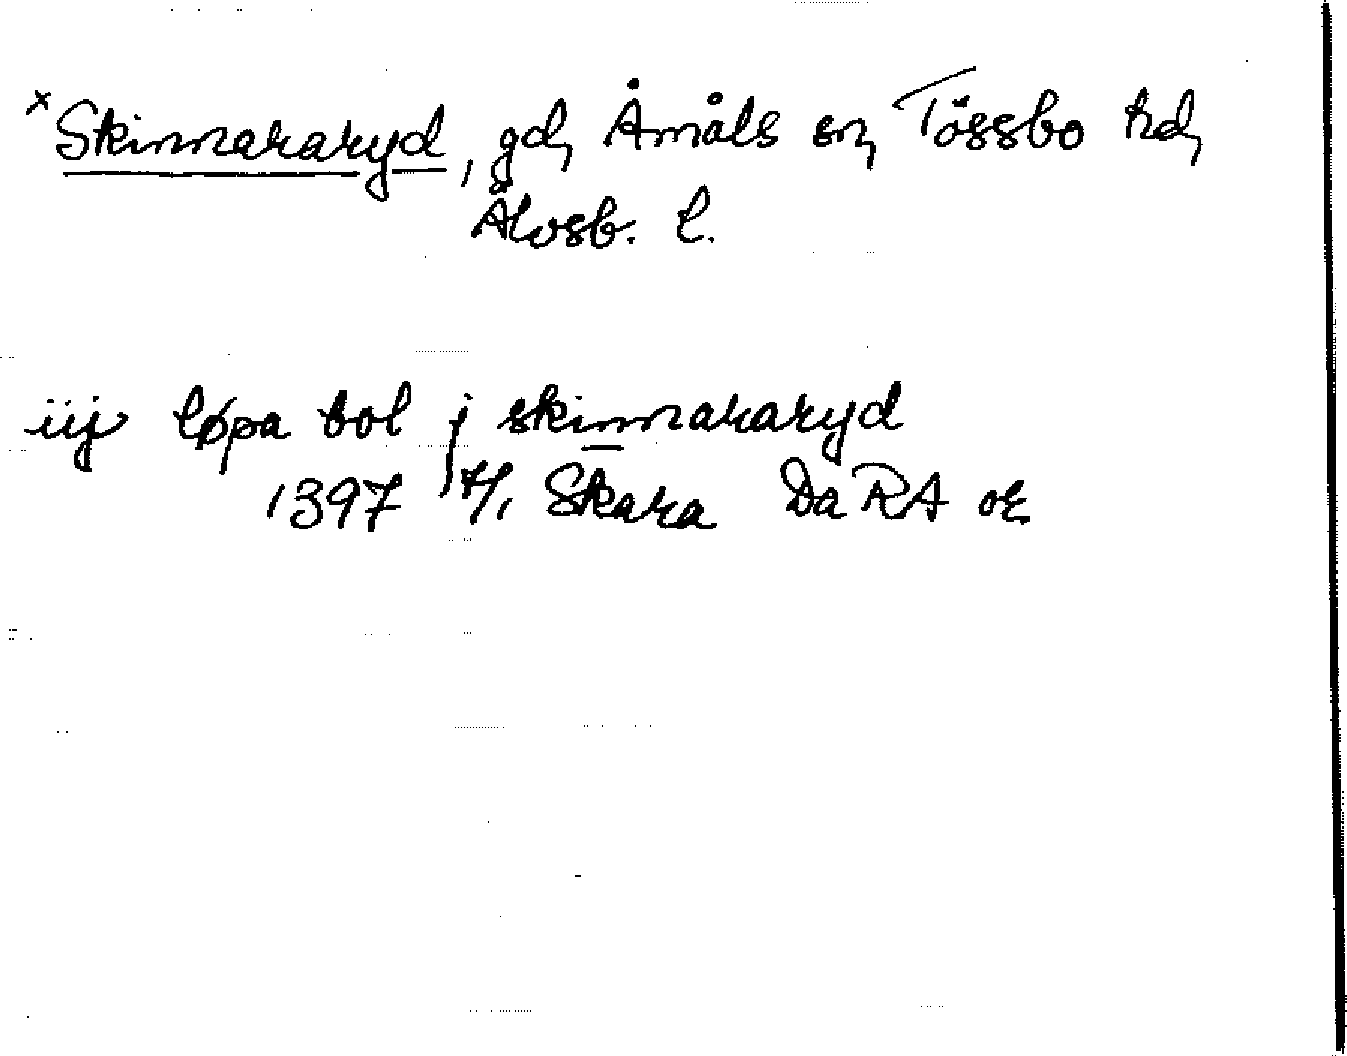 x Skinnararyd, gd, Åmåls sn, Tössbo hd,
Älvsb. l.
iij løpa bol j skinnararyd
1397 7/1 Skara DaRA or.